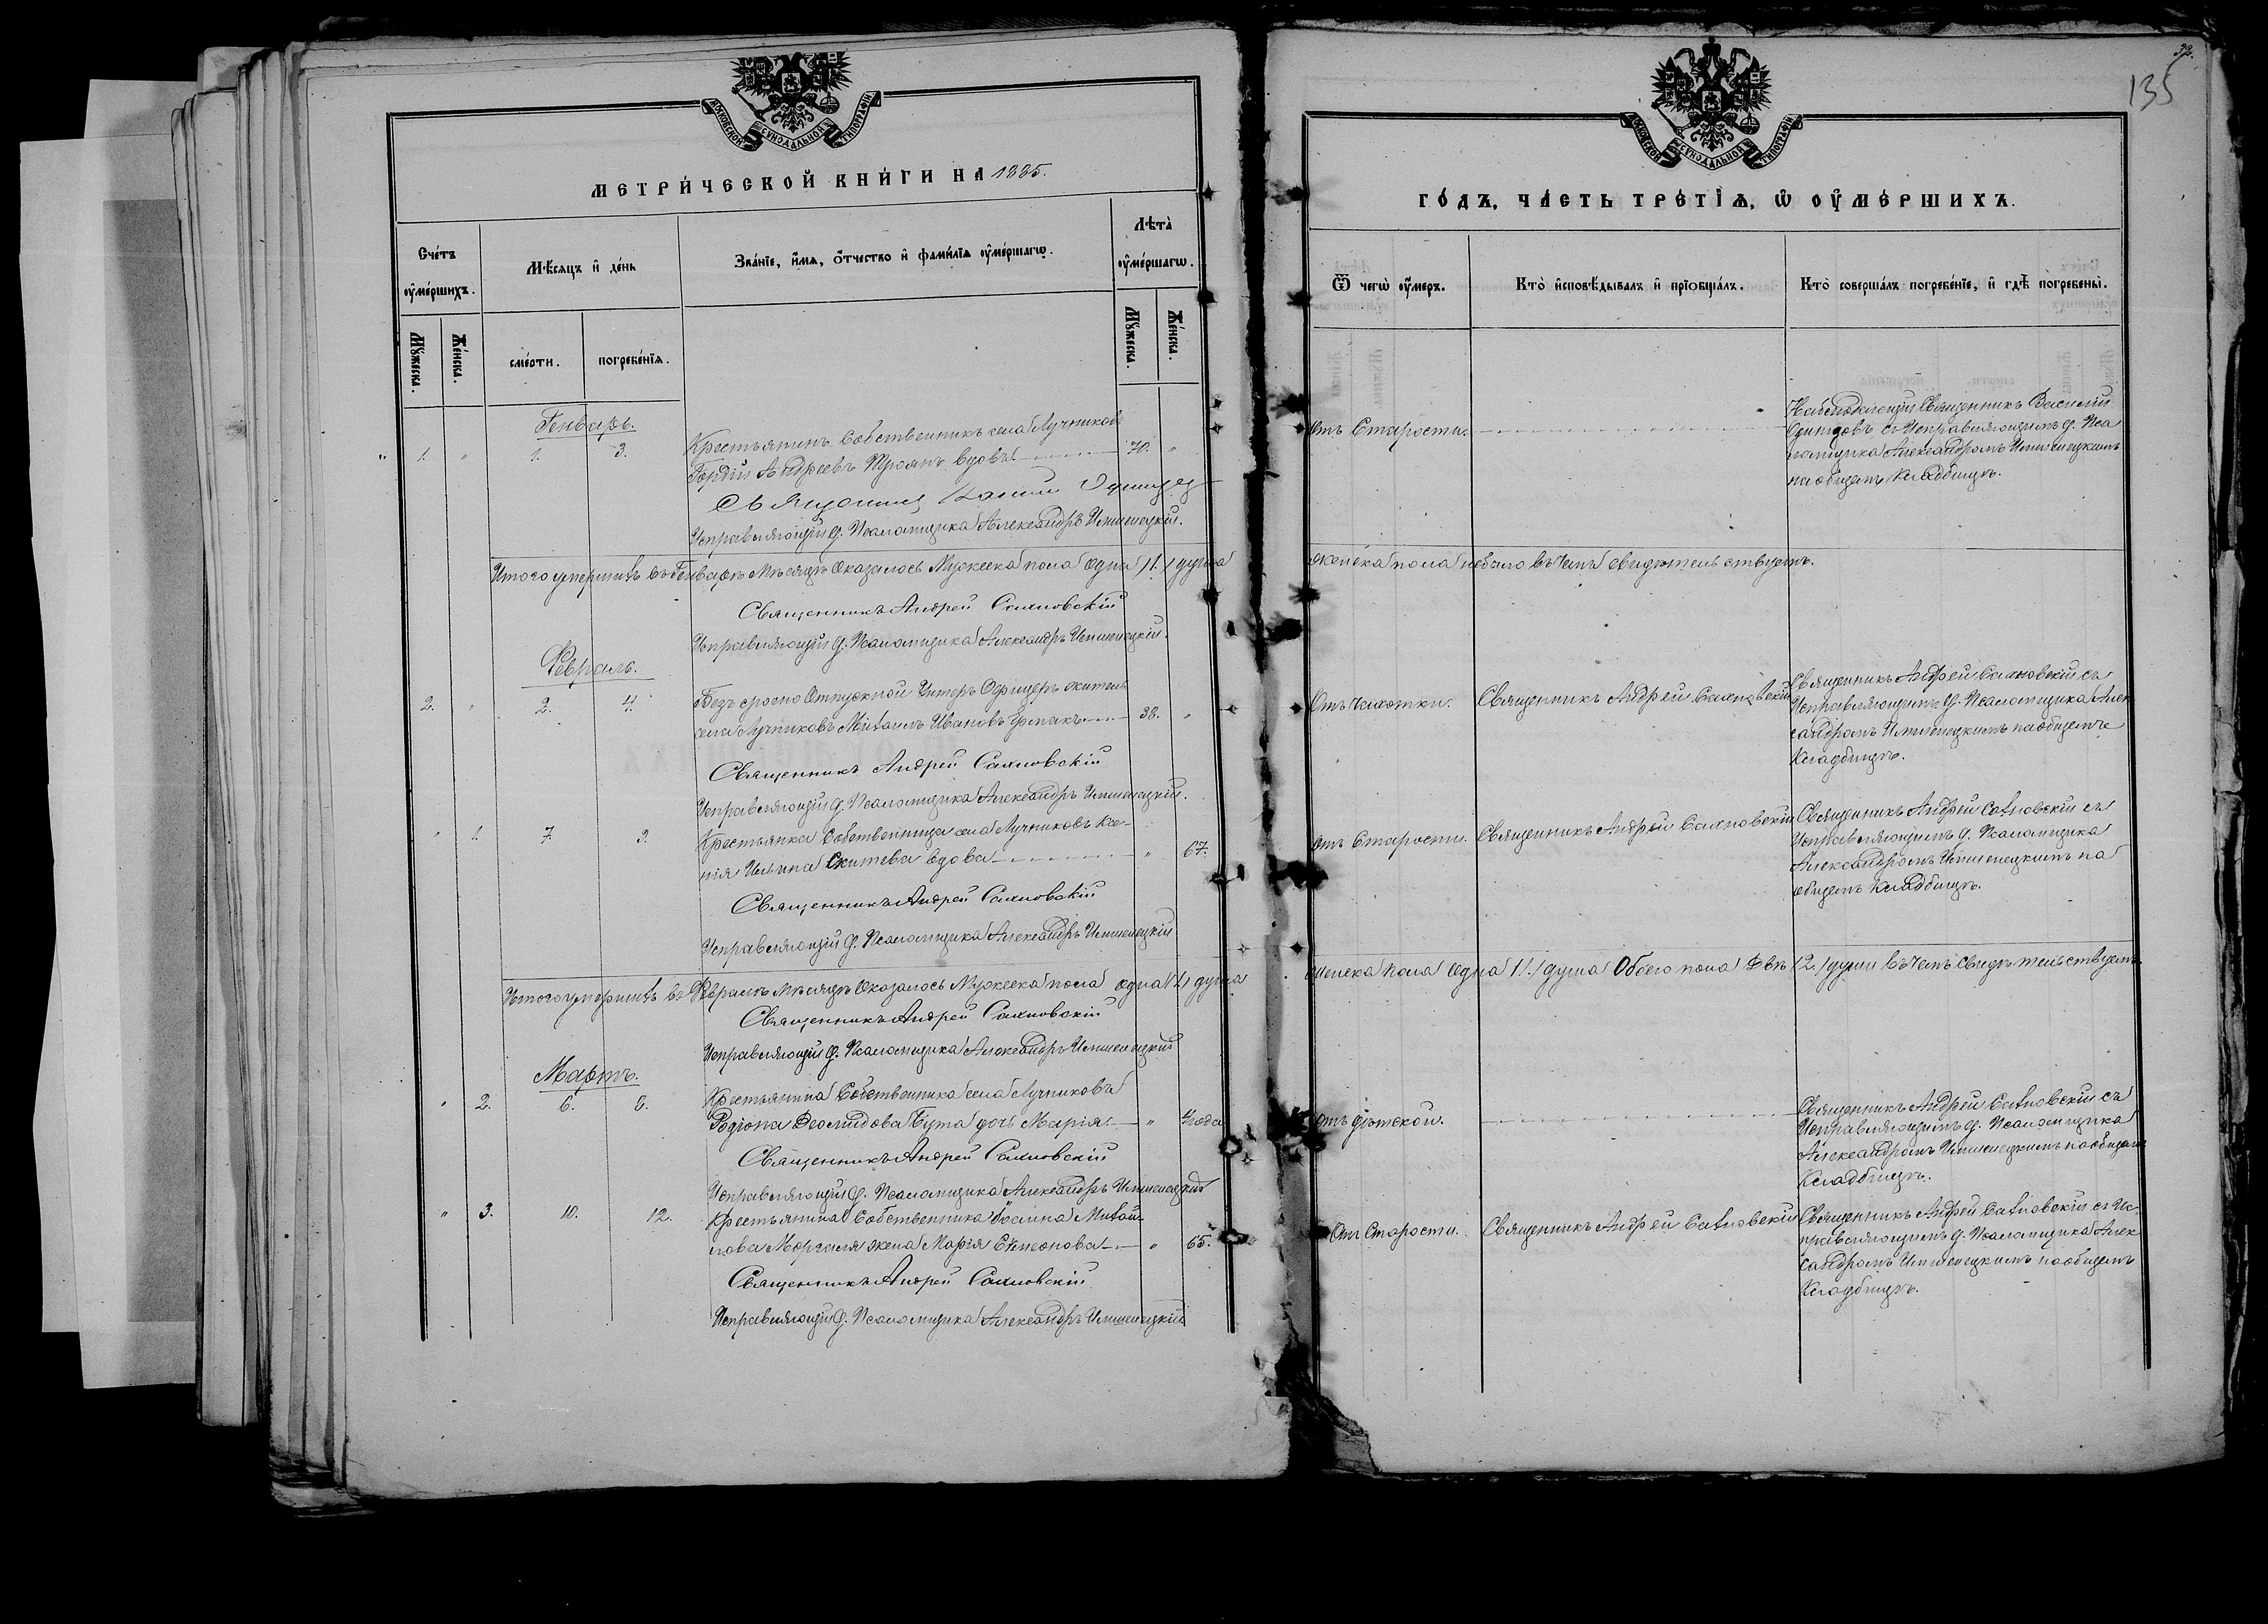 МОСКОВСКОЙ СУНОДАЛЬНОЙ ТИПОГРАФІИ
МЕТРИ́ЧЕСКОЙ КНИ́ГИ НА 1885.
Сче́тъ ᲂу҆ме́ршихъ.
Мѣ́сяцъ и҆ де́нь
Зва́нїе, и҆́мя, ѻ҆́тчество и҆ фами́лїя ᲂу҆ме́ршагѡ.
Лѣта̀ ᲂу҆ме́ршагѡ.
Мꙋ́жеска.
Же́нска.
сме́рти.
погребе́нїя.
Мꙋ́жеска.
Же́нска.
Генварь.
" 1. " 1. 3. Крестьянинъ Собственникъ села Лучниковъ
Гордій Андреевъ Троянъ вдовъ 70. "
Священник
Исправляющій д. Псаломщика Александръ
Итого умершихъ въ Генварѣ Мѣсяцѣ Оказалось Мужеска пола одна /1./ душа
Священникъ Андрей Сахновскій
Исправляющій д. Псаломщика Александръ
Февраль.
2. " 2. 4. Безъ срочно Отпускной Унтеръ Офицеръ житель
села Лучниковъ Михаилъ Ивановъ Ермакъ 38. "
Священникъ Андрей Сахновскій
Исправляющій д. Псаломщика Александръ
" 1. 7. 9. Крестьянка Собственница села Лучниковъ Ксе-
нія Ильина вдова " 67.
Священникъ Андрей Сахновскій
Исправляющій д. Псаломщика Александръ
Итого умершихъ въ Февралѣ Мѣсяцѣ Оказалось Мужеска пола одна /1./ душа
Священникъ Андрей Сахновскій
Исправляющій д. Псаломщика Александръ
Мартъ.
" 2. 6. 8. Крестьянина Собственника села Лучниковъ
Родіона Деомидова Бута дочь Марія " 4 года
Священникъ Андрей Сахновскій
Исправляющій д. Псаломщика Александръ
" 3. 10. 12. Крестьянина Собственника Іоанна Михай-
лова Моргаля жена Марія Симеонова " 65.
Священникъ Андрей Сахновскій
Исправляющій д. Псаломщика Александръ
32.
135
МОСКОВСКОЙ СУНОДАЛЬНОЙ ТИПОГРАФІИ
ГО́ДЪ, ЧА́СТЬ ТРЕ́ТЇѦ, Ѡ҆ ОУ҆МЕ́РШИХЪ.
Ѿ чегѡ̀ ᲂу҆́меръ.
Кто̀ и҆сповѣ́дывалъ и҆ прїѻбща́лъ.
Кто̀ соверша́лъ погребе́нїе, и҆ гдѣ̀ погребены̀.
отъ Старости.
Наблюдающій Священникъ Василій
Одинцовъ съ Исправляющимъ д. Пса
ломщика Александромъ
на общемъ Кладбищѣ.
женска пола небыло въ чемъ свидѣтельствуемъ.
Отъ чахотки. Священникъ Андрей Сахновскій
Священникъ Андрей Сахновскій съ
Исправляющимъ д. Псаломщика Алек
сандромъ на общемъ
Кладбищѣ.
отъ Старости. Священникъ Андрей Сахновскій
Священникъ Андрей Сахновскій съ
Исправляющимъ д. Псаломщика
Александромъ на
общемъ Кладбищѣ.
женска пола одна /1./ душа Обоего пола двѣ /2./ души въ чемъ свидѣтельствуемъ.
отъ дѣтской.
Священникъ Андрей Сахновскій съ
Исправляющимъ д. Псаломщика
Александромъ на общемъ
Кладбищѣ.
Отъ Старости. Священникъ Андрей Сахновскій
Священникъ Андрей Сахновскій съ Ис-
правляющимъ д. Псаломщика Алек
сандромъ на общемъ
Кладбищѣ.